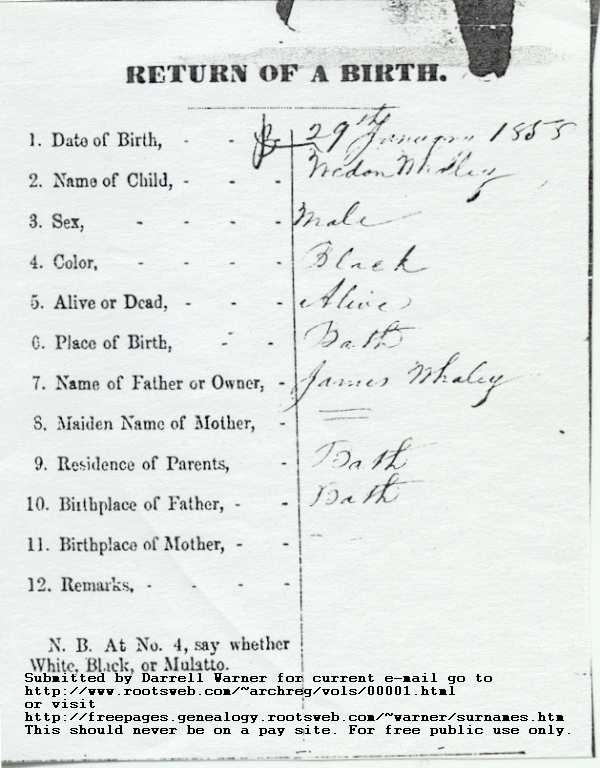 RETURN OF A BIRTH.
1. Date of Birth, - - 29th January 1858
2. Name of Child, - - - Whaley
3. Sex, - - - - Male
4. Color, - - - - Black
5. Alive or Dead, - - - Alive
6. Place of Birth, - - Bath
7. Name of Father or Owner, - James Whaley
8. Maiden Name of Mother, -
9. Residence of Parents, - Bath
10. Birthplace of Father, - - Bath
11. Birthplace of Mother, - -
12. Remarks, - - - -
N. B. At No. 4, say whether
White, Black, or Mulatto.
Submitted by Darrell Warner for current e-mail go to
http://www.rootsweb.com/~archreg/vols/00001.html
or visit
http://freepages.genealogy.rootsweb.com/~warner/surnames.htm
This should never be on a pay site. For free public use only.